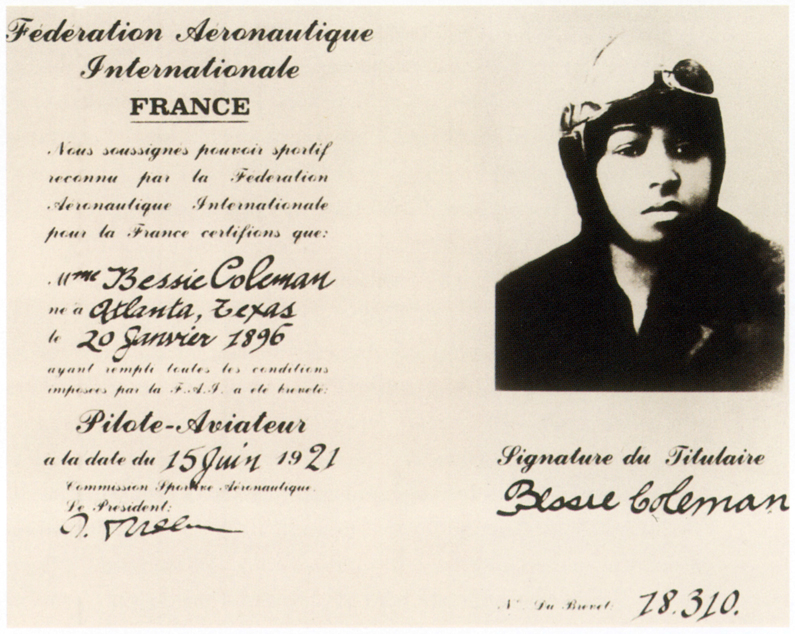 Fédération Aéronautique
Internationale
FRANCE
Nous soussignés pouvoir sportif
reconnu par la Federation
Aeronautique Internationale
pour la France certifions que:
Mme Bessie Coleman
né à Atlanta, Texas
le 20 Janvier 1896
ayant rempli toutes les conditions
imposées par la F.A.I. a été breveté:
Pilote-Aviateur
a la date du 15 Juin 1921
Commission Sportive Aéronautique.
Le President:
Signature du Titulaire
Bessie Coleman
No. Du Brevet: 18.310.